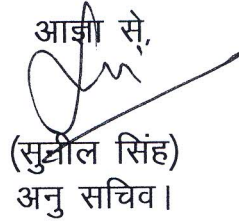 आज्ञा से,
(सुनील सिंह)
अनु सचिव।